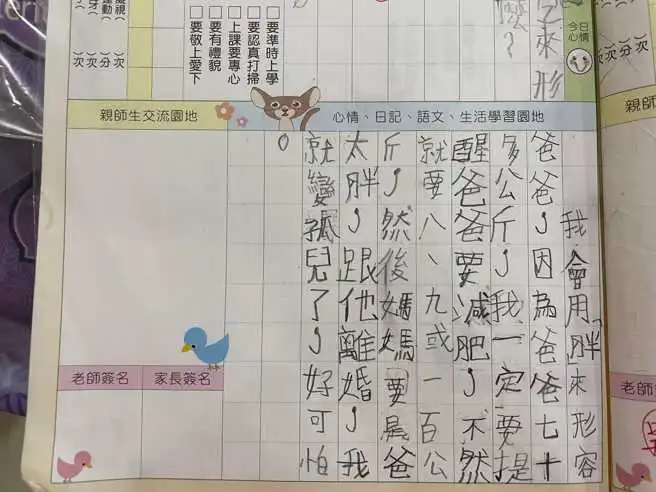 今日心情
字來形
麼？
□要準時上學
□要認真打掃
□上課要專心
□要有禮貌
□要敬上愛下
心情、日記、語文、生活學習園地
我會用「胖來形容
爸爸，因為爸爸七十
多公斤，我一定要提
醒爸爸要減肥，不然
就要八、九或一百公
斤，然後媽媽要爸
太胖，跟他離婚，我
就變孤兒了，好可怕
。
親師生交流園地
家長簽名
老師簽名
親師
老師